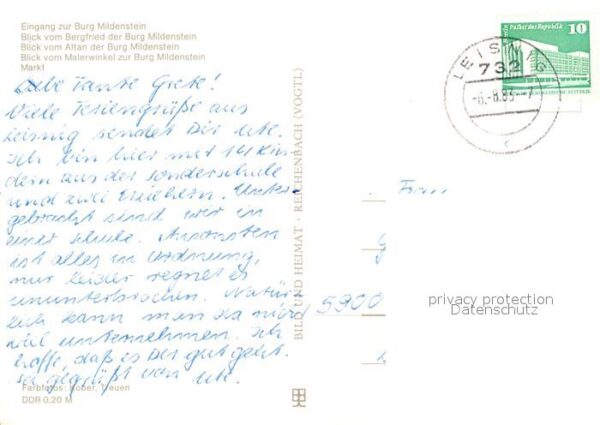 Eingang zur Burg Mildenstein
Blick vom Bergfried der Burg Mildenstein
Blick vom Altan der Burg Mildenstein
Blick vom Malerwinkel zur Burg Mildenstein
Markt
Liebe Tante Grete!
Viele Feriengrüße aus
Leisnig sendet Dir Ute.
Ich bin hier mit 14 Kin-
dern aus der Sonderschule
und zwei Erziehern. Unter-
gebracht sind wir in
einer Schule. Ansonsten
ist alles in Ordnung,
nur leider regnet es
ununterbrochen. Natür-
lich kann man da nicht
viel unternehmen. Ich
hoffe, daß es Dir gut geht.
Sei gegrüßt von Ute.
Farbfotos: Kober, Treuen
DDR 0,20 M
BILD UND HEIMAT · REICHENBACH (VOGTL)
LEISNIG
732
-6.-8.85.-7
c
Palast der Republik
10
Frau
5300
privacy protection
Datenschutz